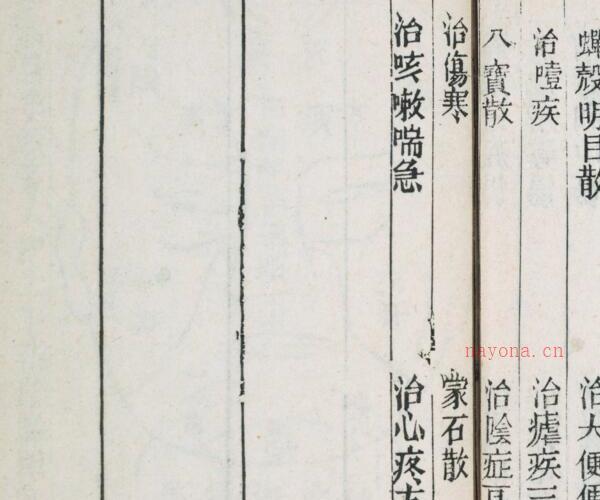 蟬殻明目散
治大便
治噎疾
治瘧疾
八寶散
治隂症
治傷寒
蒙石散
治咳嗽喘急
治心疼
nayona.cn